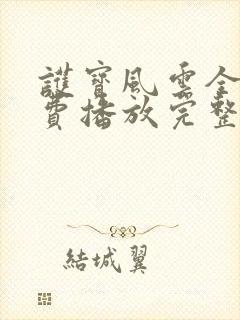 護寶風雲全
費播放完整
結城翼